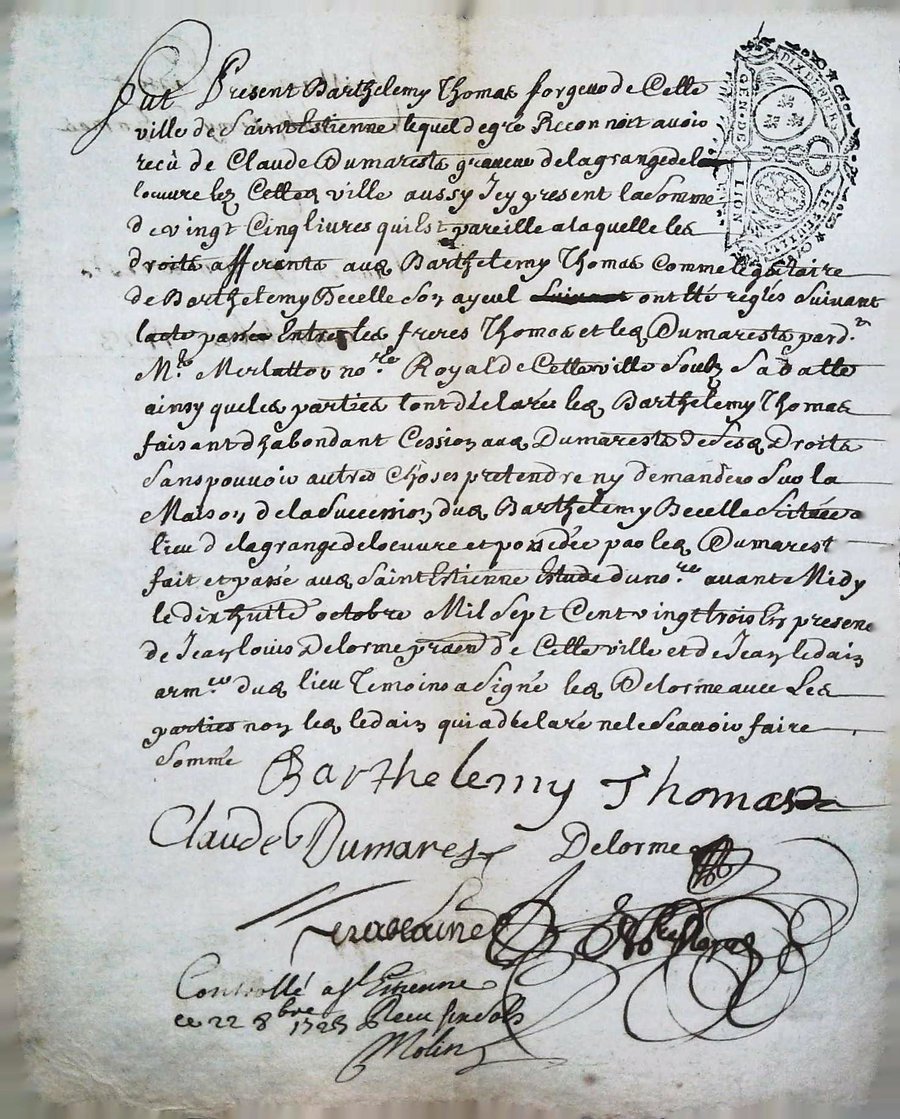 Fut Present Barthelemy Thomas forgeur de Cette
ville de Saint Estienne lequel de gré Reconnoit avoir
reçû de Claude Dumarests graveur de la grange de l
loeuvre lez Cette ville aussy Icy present la Somme
De vingt Cinq livres qui Est pareille a laquelle les
droits afferants aud Barthelemy Thomas Comme legataire
de Barthelemy Becelle Son ayeul ont Eté reglés Suivant
lacte passé Entre les freres Thomas et led Dumarests pard.t
M.e Merlattor no.re Royal de Cette ville Soubz Sa datte
ainsy que les parties lont déclaré led Barthelemy Thomas
faisant dhabondant Cession aud Dumarests de Sesd Droits
Sans pouvoir autres Choses pretendre ny demander Sur la
Maison de la Succession dud Barthelemy Becelle Scituée a
lieu de la grange de loeuvre et possedée par led Dumarest
fait et passé aud Saint Estienne Estude du no.re avant Midy
le dix huit octobre Mil Sept Cent vingt trois En presence
de Jean Louis Delorme de Cette ville et de Jean ledain
arm.er dud lieu Temoins a Signé led Delorme avec Les
parties non led ledain qui a déclaré ne le Scavoir faire
Sommé
Barthelemy Thomas
Claude Dumarest Delorme
Controllé a St Etienne
ce 22 8bre 1723 Receu six sols
Molin
GEN. DE LION
DIX DENIERS
LE FEUILLE